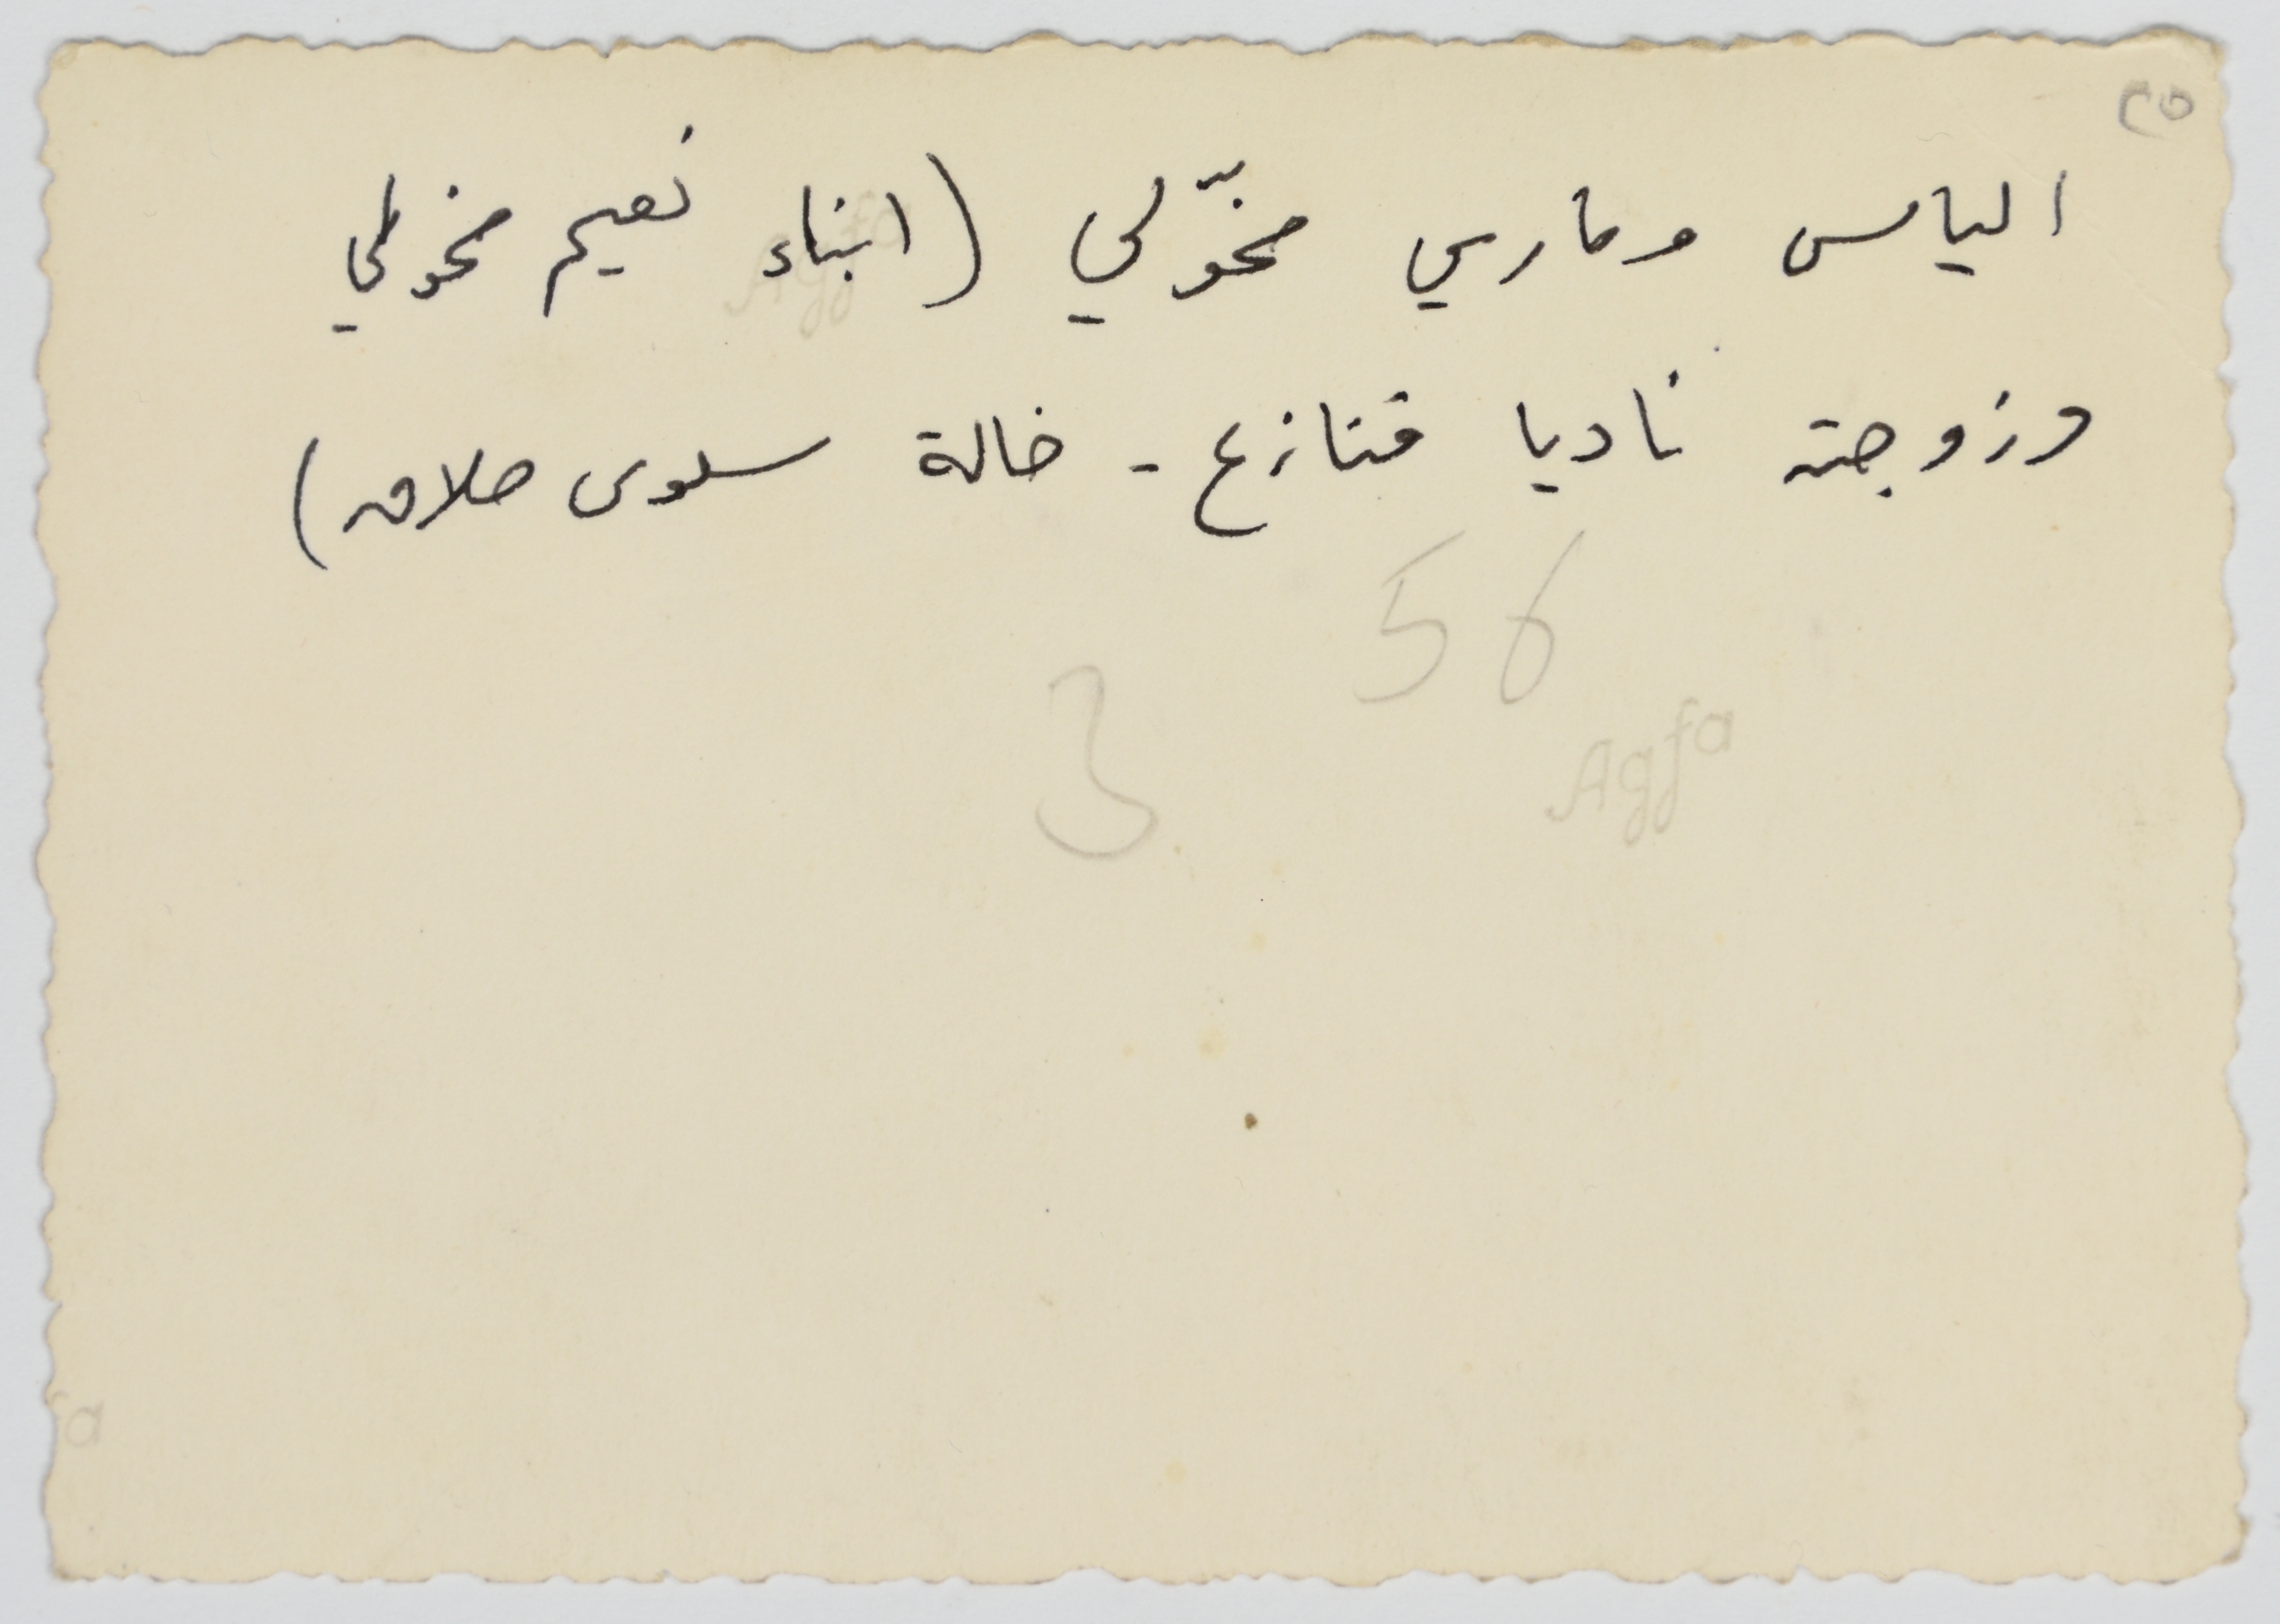 ٢٥
الياس وماري مخّولي (ابناء نعيم مخولي
وزوجته ناديا قنازع - خالة سلوى
56
3
Agfa
Agfa